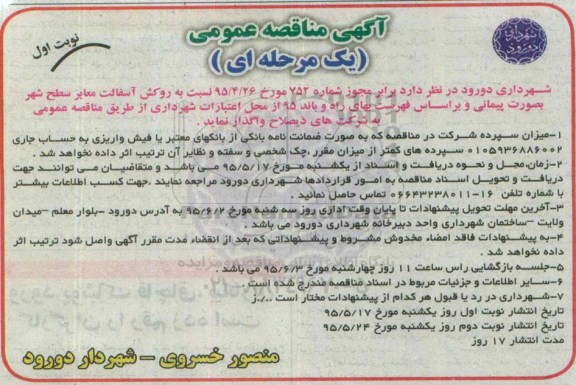 آگهی مناقصه عمومی
(یک مرحله ای)
نوبت اول
شهرداری دورود
شهرداری دورود در نظر دارد برابر مجوز شماره ۷۵۲ مورخ ۹۵/۴/۲۶ نسبت به روکش آسفالت معابر سطح شهر
بصورت پیمانی و براساس فهرست بهای راه و باند ۹۵ از محل اعتبارات شهرداری از طریق مناقصه عمومی
به شرکت های ذیصلاح واگذار نماید .
۱-میزان سپرده شرکت در مناقصه که به صورت ضمانت نامه بانکی از بانکهای معتبر یا فیش واریزی به حساب جاری
۰۱۰۵۹۳۶۸۸۶۰۰۲ سپرده های کمتر از میزان مقرر ,چک شخصی و سفته و نظایر آن ترتیب اثر داده نخواهد شد .
۲-زمان،محل و نحوه دریافت و اسناد از یکشنبه مورخ ۹۵/۵/۱۷ می باشد و متقاضیان می توانند جهت
دریافت و تحویل اسناد مناقصه به امور قراردادها شهرداری دورود مراجعه نمایند .جهت کسب اطلاعات بیشتر
با شماره تلفن ۱۶-۰۶۶۴۳۲۳۸۰۱۱ تماس حاصل نمائید .
۳-آخرین مهلت تحویل پیشنهادات تا پایان وقت اداری روز سه شنبه مورخ ۹۵/۶/۲ به آدرس دورود -بلوار معلم -میدان
ولایت -ساختمان شهرداری واحد دبیرخانه شهرداری دورود می باشد .
۴-به پیشنهادات فاقد امضاء مخدوش مشروط و پیشنهاداتی که بعد از انقضاء مدت مقرر آگهی واصل شود ترتیب اثر
داده نخواهد شد .
۵-جلسه بازگشایی راس ساعت ۱۱ روز چهارشنبه مورخ ۹۵/۶/۳ می باشد .
۶-سایر اطلاعات و جزئیات مربوط در اسناد مناقصه مندرج شده است .
۷-شهرداری در رد یا قبول هر کدام از پیشنهادات مختار است ../.ز
تاریخ انتشار نوبت اول روز یکشنبه مورخ ۹۵/۵/۱۷
تاریخ انتشار نوبت دوم روز یکشنبه مورخ ۹۵/۵/۲۴
مدت انتشار ۱۷ روز
منصور خسروی - شهردار دورود